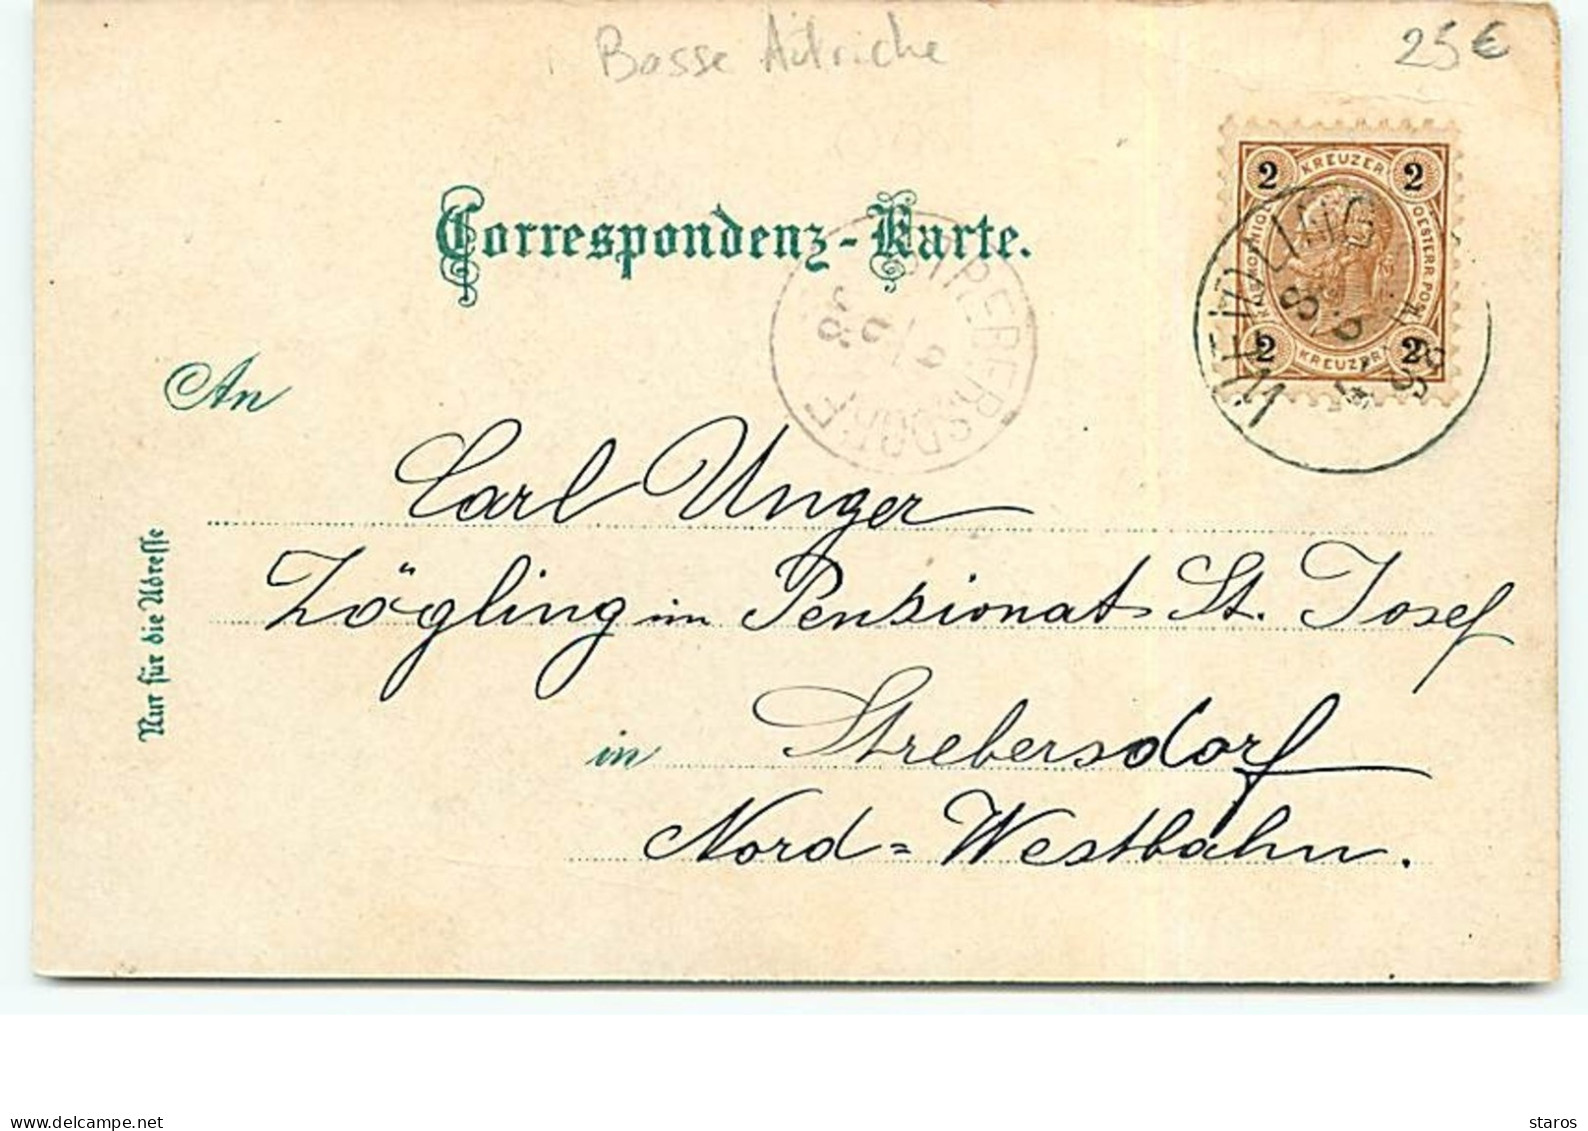 Basse Autriche
25€
Correspondenz-Karte.
2 KREUZER 2
OESTERR. POST
2 KREUZER 2
WEIDLING
STREBERSDORF
An
Carl Unger
Zögling im Pensionat St. Josef
in Strebersdorf
Nord=Westbahn.
Nur für die Adresse
delcampe.net
staros